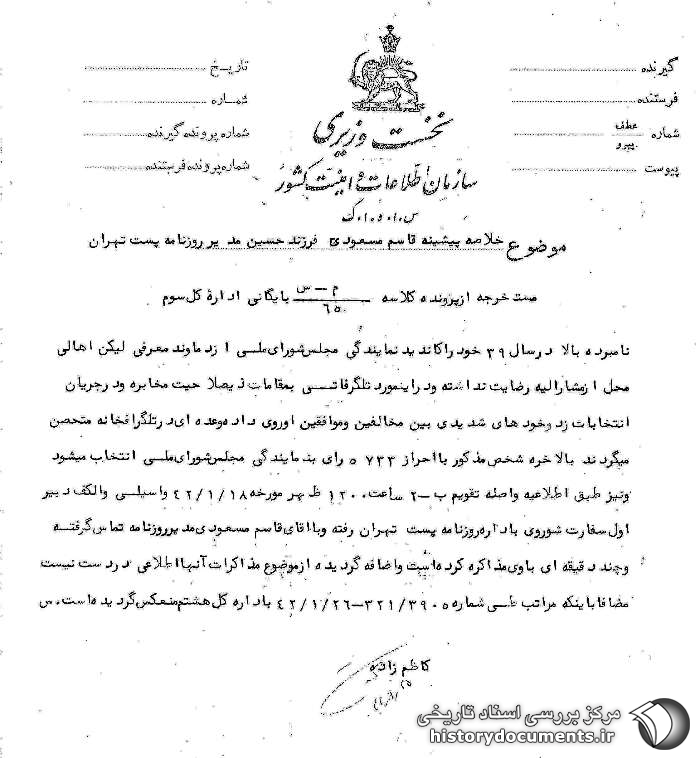 گیرنده
فرستنده
شماره عطف پیرو
پیوست
نخست وزیری
سازمان اطلاعات و امنیت کشور
تاریخ
شماره
شماره پرونده گیرنده
شماره پرونده فرستنده
موضوع خلاصه پیشینه قاسم مسعودی فرزند حسین مدیر روزنامه پست تهران
مستخرجه از پرونده کلاسه م-س / ۶۵ بایگانی اداره کل سوم
نامبرده بالا در سال ۳۹ خود را کاندید نمایندگی مجلس شورای ملی از دماوند معرفی لیکن اهالی
محل از مشارالیه رضایت نداشته و در اینمورد تلگرافاتی بمقامات ذیصلاحیت مخابره و در جریان
انتخابات زد و خود های شدیدی بین مخالفین و موافقین او روی داده و عده ای در تلگرافخانه متحصن
میگردند بالاخره شخص مذکور با احراز ۵۷۳۳ رای بنمایندگی مجلس شورای ملی انتخاب میشود
و نیز طبق اطلاعیه واصله تقویم ب-۲ ساعت ۱۲۰ ظهر مورخه ۴۲/۱/۱۸ واسیلی والکف دبیر
اول سفارت شوروی باداره روزنامه پست تهران رفته و با آقای قاسم مسعودی مدیر روزنامه تماس گرفته
و چند دقیقه ای با وی مذاکره کرده است و اضافه گردیده از موضوع مذاکرات آنها اطلاعی در دست نیست
مضافا باینکه مراتب طی شماره ۳۲۱/۳۹۰۵-۴۲/۱/۲۶ باداره کل هشتم منعکس گردیده است. س
کاظم زاده
مرکز بررسی اسناد تاریخی
historydocuments.ir